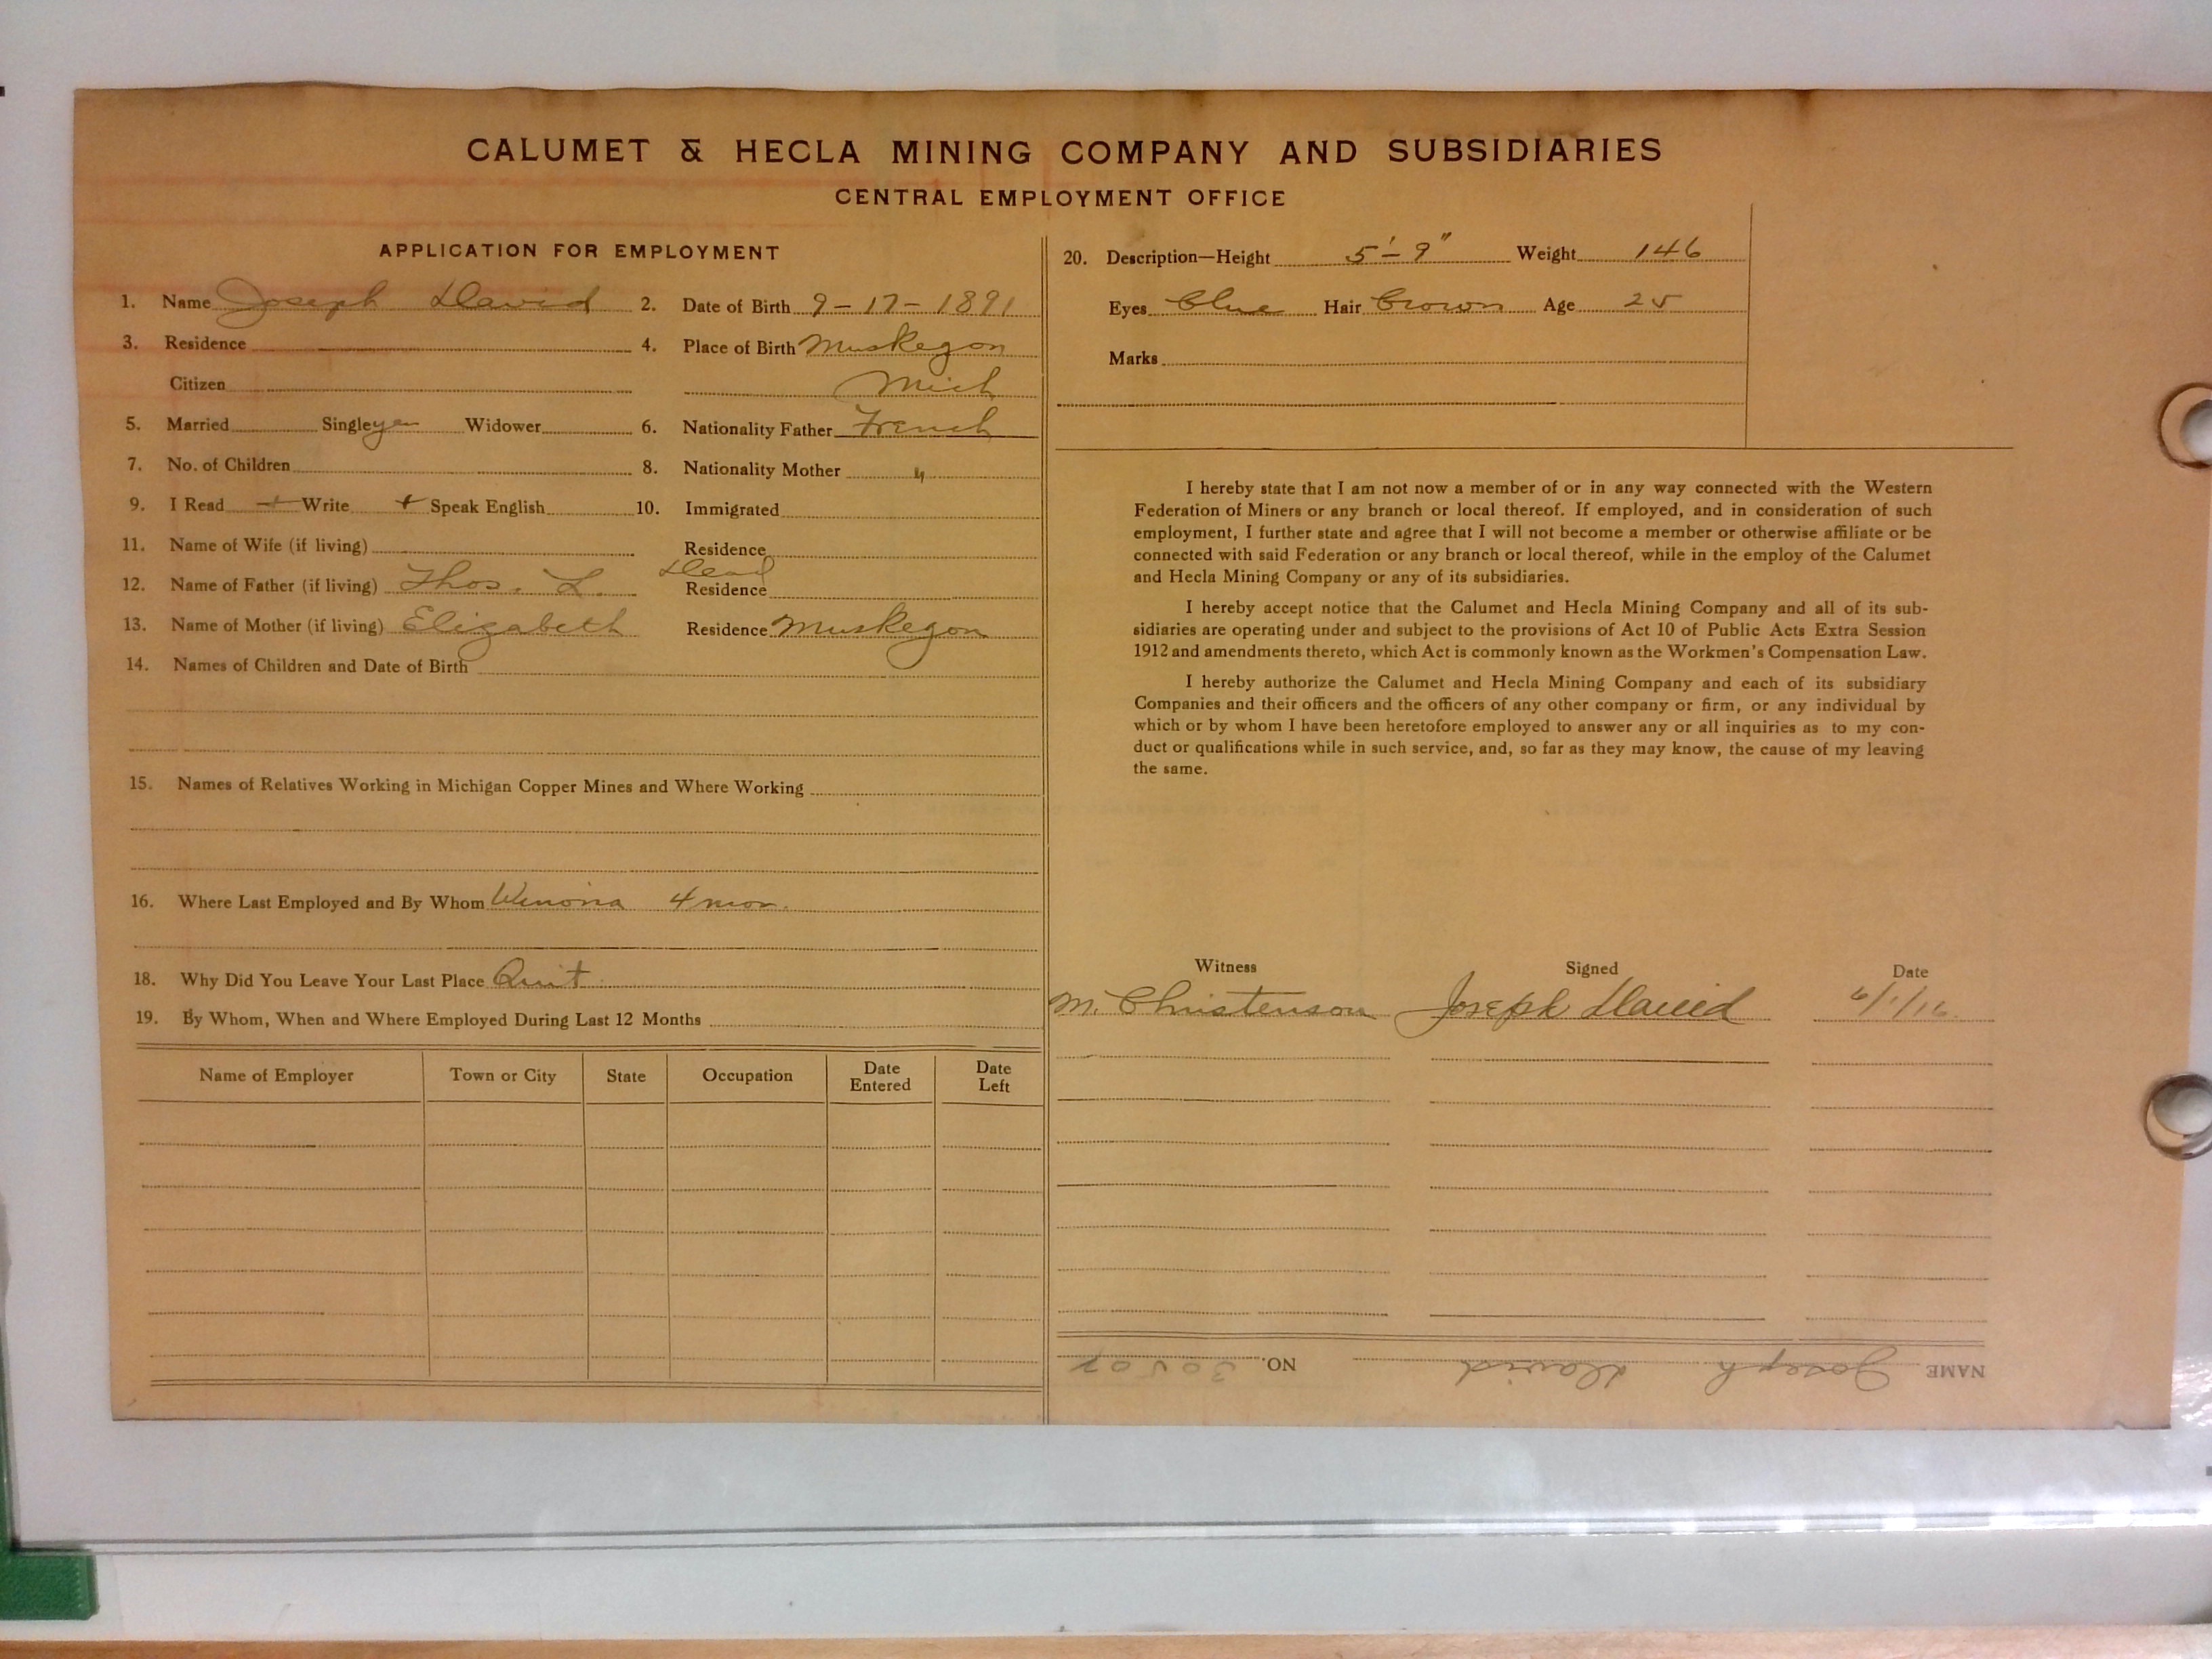 CALUMET & HECLA MINING COMPANY AND SUBSIDIARIES
CENTRAL EMPLOYMENT OFFICE
APPLICATION FOR EMPLOYMENT
1. Name Joseph David 2. Date of Birth 9-17-1891
3. Residence 4. Place of Birth Muskegon
Citizen Mich
5. Married Single yes Widower 6. Nationality Father French
7. No. of Children 8. Nationality Mother "
9. I Read + Write + Speak English 10. Immigrated
11. Name of Wife (if living) Residence
12. Name of Father (if living) Thos. L. Dead Residence
13. Name of Mother (if living) Elizabeth Residence Muskegon
14. Names of Children and Date of Birth
15. Names of Relatives Working in Michigan Copper Mines and Where Working
16. Where Last Employed and By Whom Winona 4 mos.
18. Why Did You Leave Your Last Place Quit
19. By Whom, When and Where Employed During Last 12 Months
Name of Employer Town or City State Occupation Date Entered Date Left
20. Description—Height 5'-9" Weight 146
Eyes Blue Hair Brown Age 25
Marks
I hereby state that I am not now a member of or in any way connected with the Western
Federation of Miners or any branch or local thereof. If employed, and in consideration of such
employment, I further state and agree that I will not become a member or otherwise affiliate or be
connected with said Federation or any branch or local thereof, while in the employ of the Calumet
and Hecla Mining Company or any of its subsidiaries.
I hereby accept notice that the Calumet and Hecla Mining Company and all of its sub-
sidiaries are operating under and subject to the provisions of Act 10 of Public Acts Extra Session
1912 and amendments thereto, which Act is commonly known as the Workmen's Compensation Law.
I hereby authorize the Calumet and Hecla Mining Company and each of its subsidiary
Companies and their officers and the officers of any other company or firm, or any individual by
which or by whom I have been heretofore employed to answer any or all inquiries as to my con-
duct or qualifications while in such service, and, so far as they may know, the cause of my leaving
the same.
Witness Signed Date
M. Christenson Joseph David 6/1/16
NAME Joseph David NO.